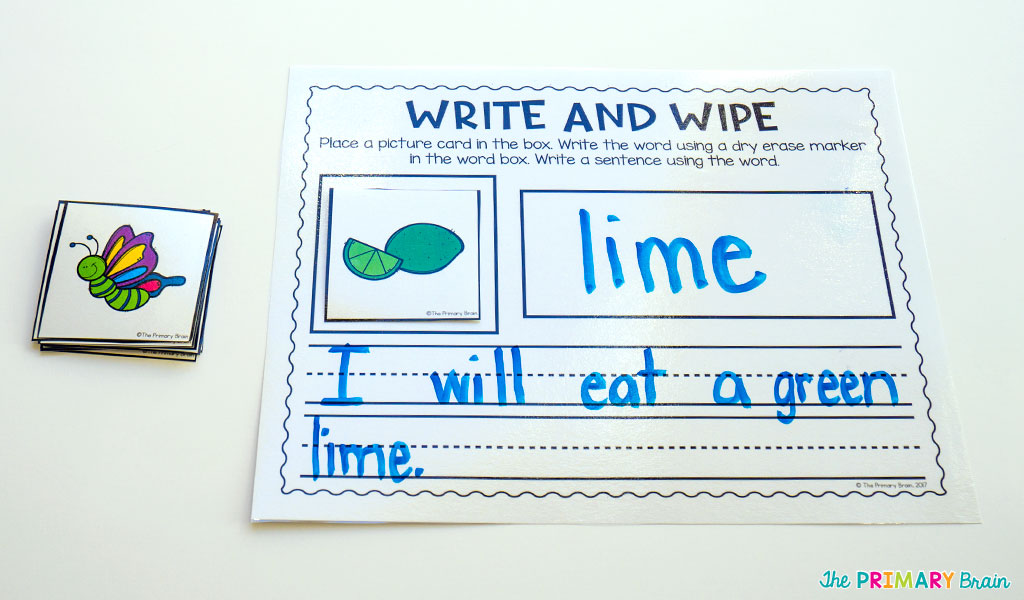 WRITE AND WIPE
Place a picture card in the box. Write the word using a dry erase marker
in the word box. Write a sentence using the word.
©The Primary Brain
©The Primary Brain
lime
I will eat a green
lime.
© The Primary Brain, 2017
The PRIMARY Brain